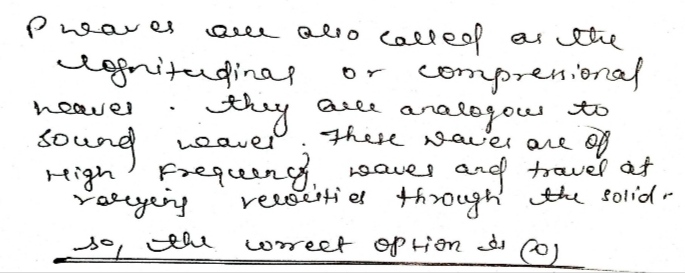 P waves are also called as the
lognitudinal or compressional
waves. they are analogous to
sound waves. These waves are of
High Frequency waves and travel at
varying velocities through the solid.
so, the correct option is (a)